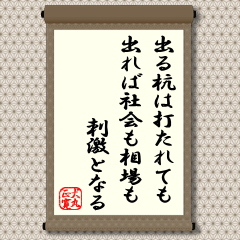 出る杭は打たれても
出れば社会も相場も
刺激となる